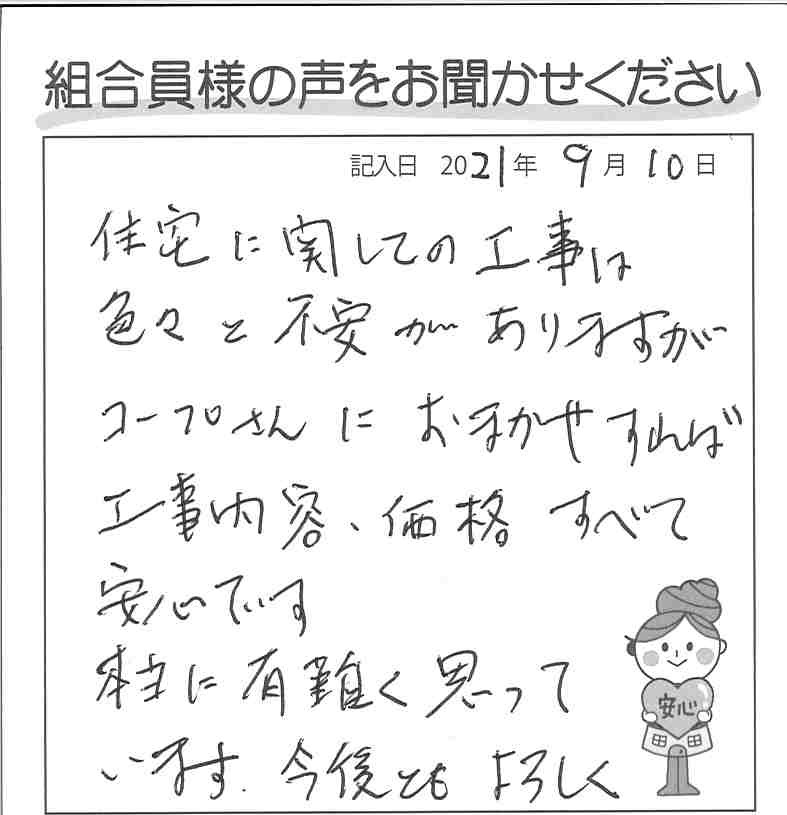 組合員様の声をお聞かせください
記入日 2021年 9月 10日
住宅に関しての工事は
色々と不安がありますが
コープさんにおまかせすれば
工事内容、価格すべて
安心です
本当に有難く思って
います.今後ともよろしく
安心